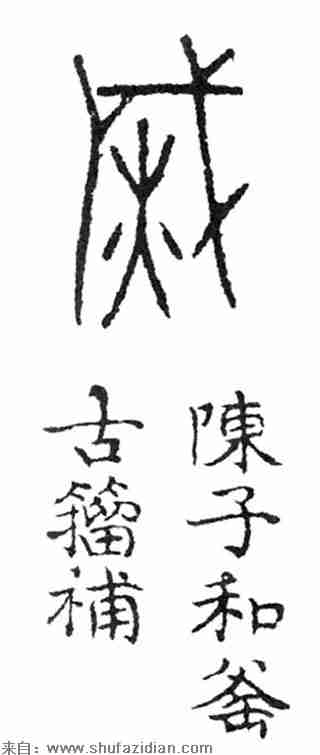 陳子和釜
古籀補
来自：www.shufazidian.com